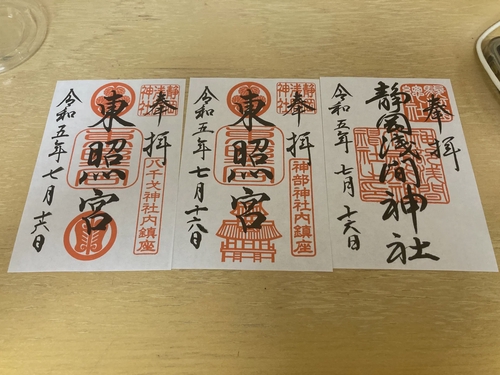 奉拝
静岡浅間神社
令和五年七月十六日
奉拝
静岡
浅間
神社
神部神社内鎮座
東照宮
令和五年七月十六日
奉拝
静岡
浅間
神社
八千戈神社内鎮座
東照宮
令和五年七月十六日